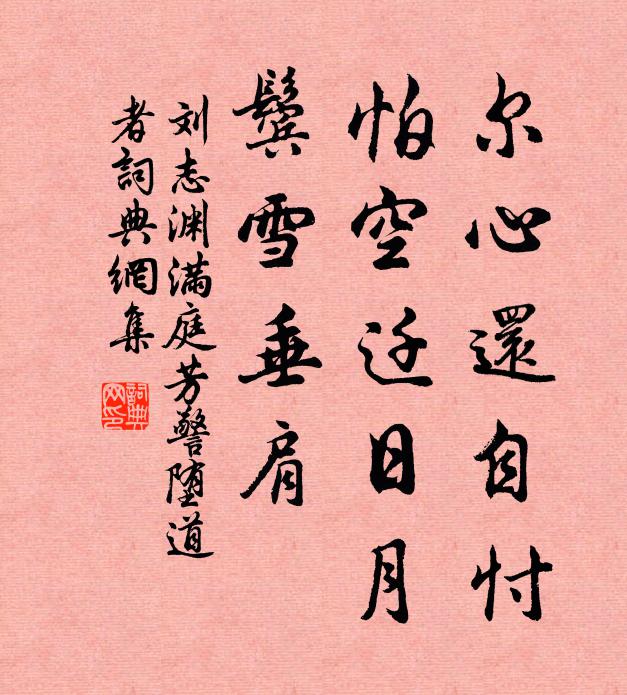 尔心還自忖
怕空迁日月
鬓雪垂肩
刘志渊满庭芳警堕道
者詞典網集
詞典
网印